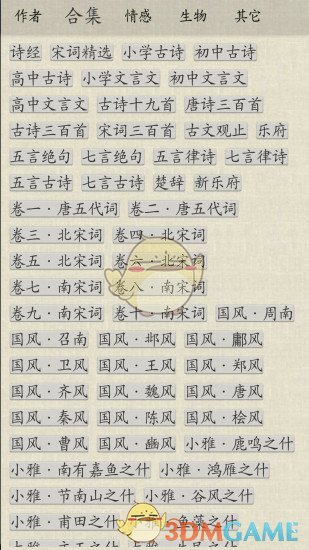 作者 合集 情感 生物 其它
诗经 宋词精选 小学古诗 初中古诗
高中古诗 小学文言文 初中文言文
高中文言文 古诗十九首 唐诗三百首
古诗三百首 宋词三百首 古文观止 乐府
五言绝句 七言绝句 五言律诗 七言律诗
五言古诗 七言古诗 楚辞 新乐府
卷一·唐五代词 卷二·唐五代词
卷三·北宋词 卷四·北宋词
卷五·北宋词 卷六·北宋词
卷七·南宋词 卷八·南宋词
卷九·南宋词 卷十·南宋词 国风·周南
国风·召南 国风·邶风 国风·鄘风
国风·卫风 国风·王风 国风·郑风
国风·齐风 国风·魏风 国风·唐风
国风·秦风 国风·陈风 国风·桧风
国风·曹风 国风·豳风 小雅·鹿鸣之什
小雅·南有嘉鱼之什 小雅·鸿雁之什
小雅·节南山之什 小雅·谷风之什
小雅·甫田之什 鱼藻之什
3DMGAME